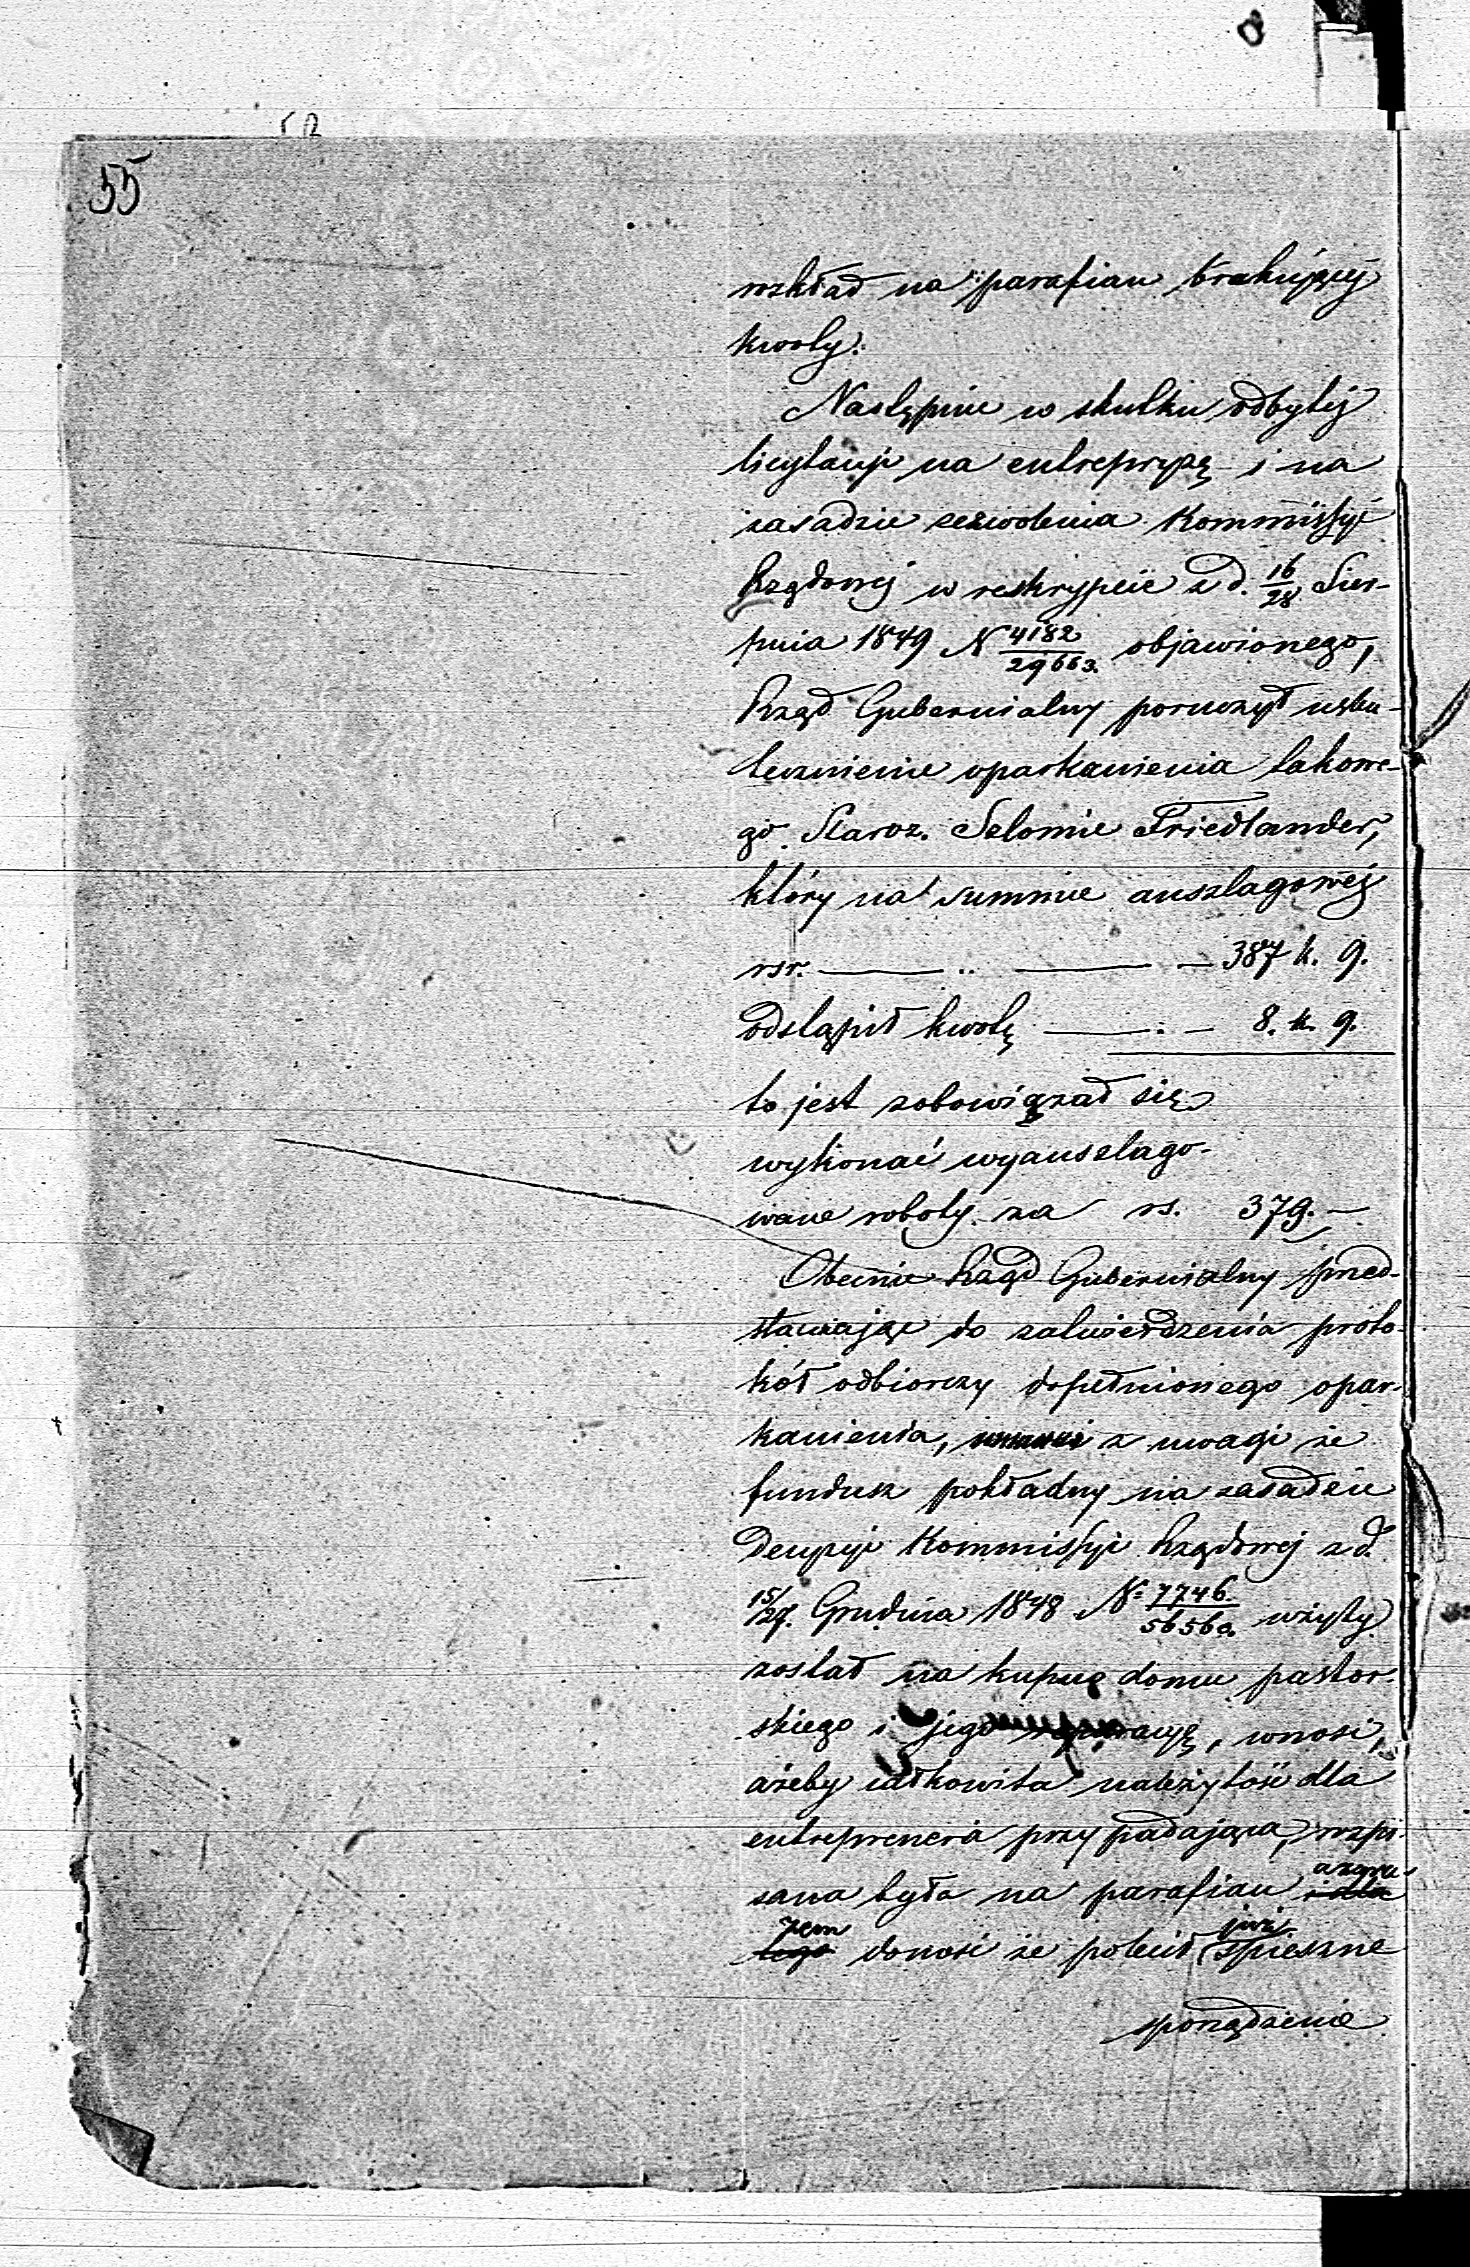 55
rozkład na parafian brakującej
kwoty.
Następnie w skutku odbytej
licytacyi na entrepryzę i na
zasadzie zezwolenia Kommissyi
Rządowej w reskrypcie z d. 16/28 Sier-
pnia 1849 N 4182/29663. objawionego,
Rząd Gubernialny poruczył usku-
tecznienie oparkanienia takowe-
go Staroz. Selomie Friedlander,
który na summie anszlagowej
rsr. — „ — — 387 k. 9.
odstąpił kwotę — . — 8. k. 9.
to jest zobowiązał się
wykonać wyanszlago-
wane roboty za rs. 379. —
Obecnie Rząd Gubernialny przed-
stawiając do zatwierdzenia proto-
kół odbiorczy dopełnionego opar-
kanienia, z uwagi że
fundusz pokładny na zasadzie
Decyzyi Kommissyi Rządowej z d.
15/27. Grudnia 1848 N: 7746/56560. użyty
został na kupno domu pastor-
skiego i jego reparacyę, wnosi,
ażeby całkowita należytość dla
entreprenera przypadająca, rozpi-
sana była na parafian i dla azara-
tego zem donosi że polecił już spieszne
sporządzenie